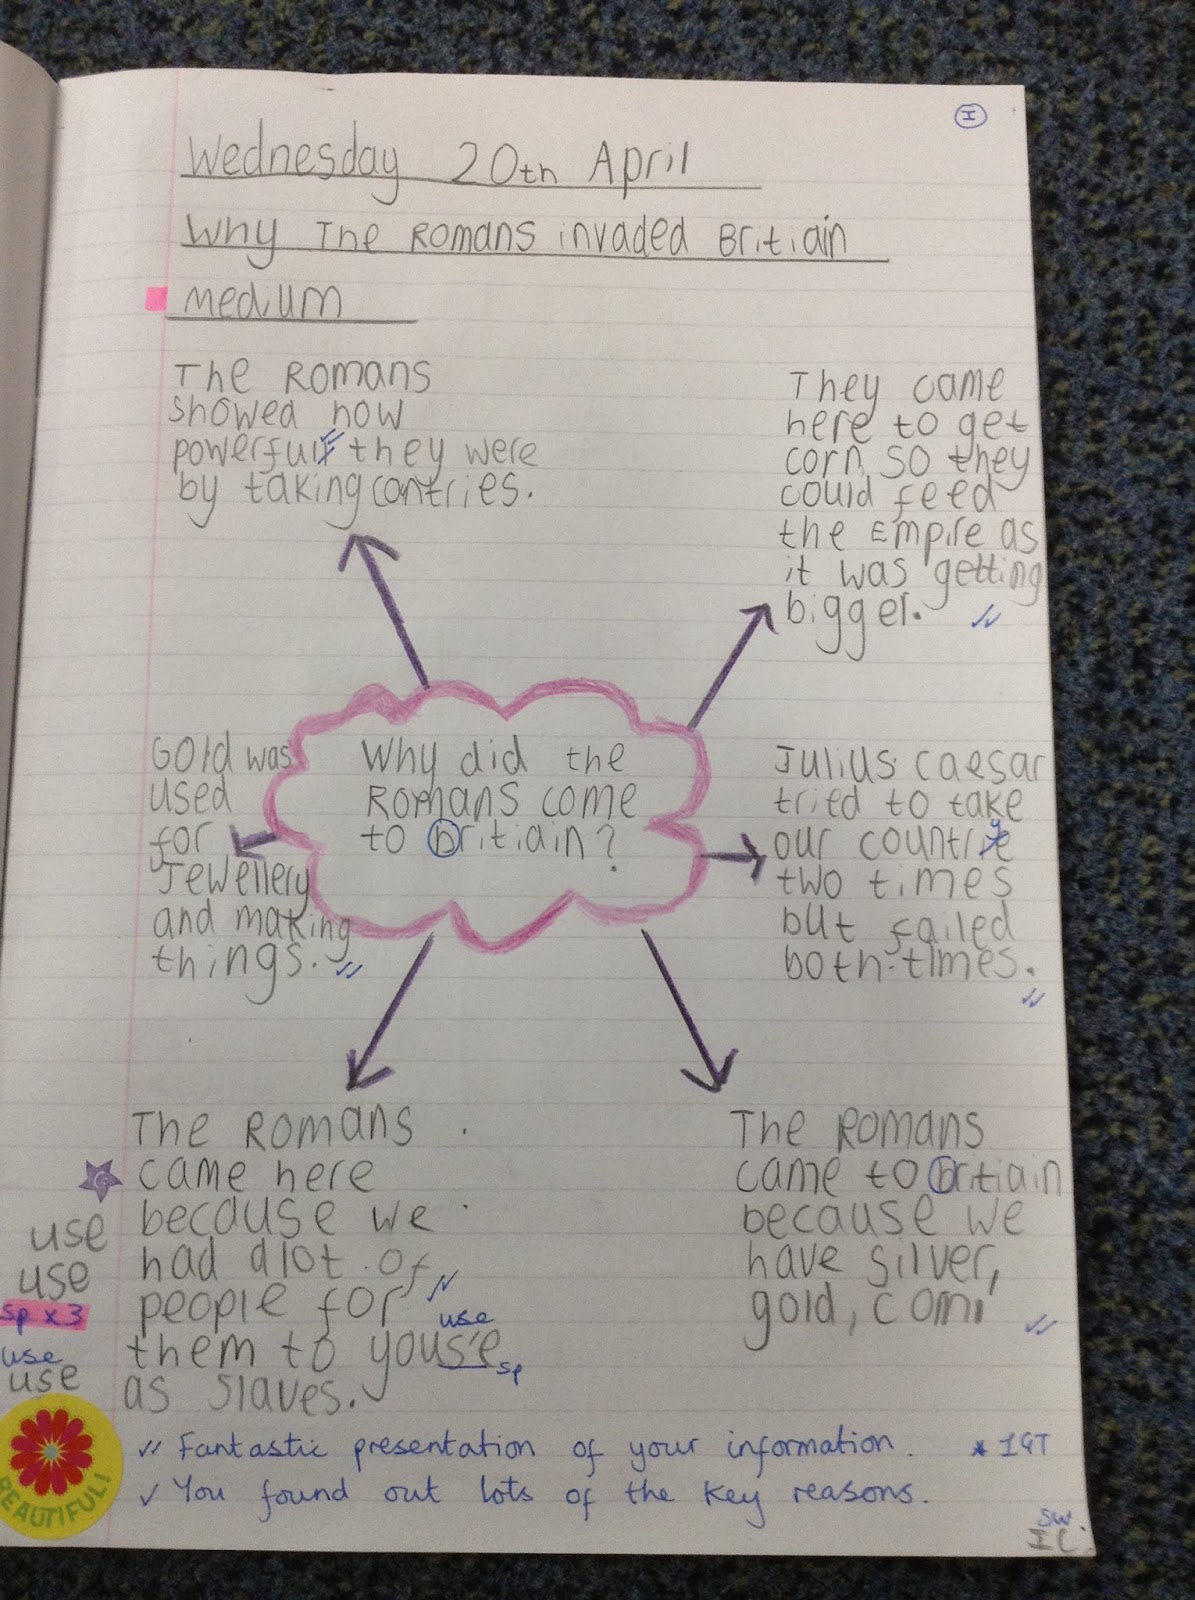 I
Wednesday 20th April
Why The Romans invaded Britiain
Medium
The Romans
showed how
powerful they were
by taking contries.
They came
here to get
corn so they
could feed
the Empire as
it was getting
bigger.
Gold was
used
for
Jewellery
and making
things.
Why did the
Romans come
to Britiain?
Julius caesar
tried to take
our country
two times
but failed
both times.
The Romans
came here
because we
had alot of
people for
use
them to youse
sp
as slaves.
use
use
sp x 3
use
use
The Romans
came to Britiain
because we
have silver,
gold, corn
✓✓ Fantastic presentation of your information. * 1GT
✓ You found out lots of the key reasons.
SW
IL
BEAUTIFUL!